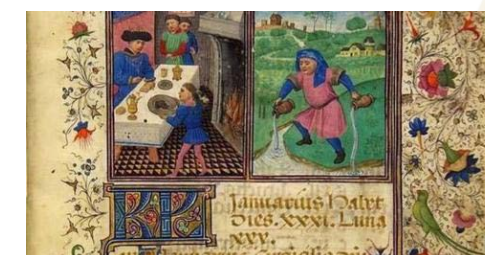 KL
Januarius habet
Dies. xxxi. Luna
xxx.